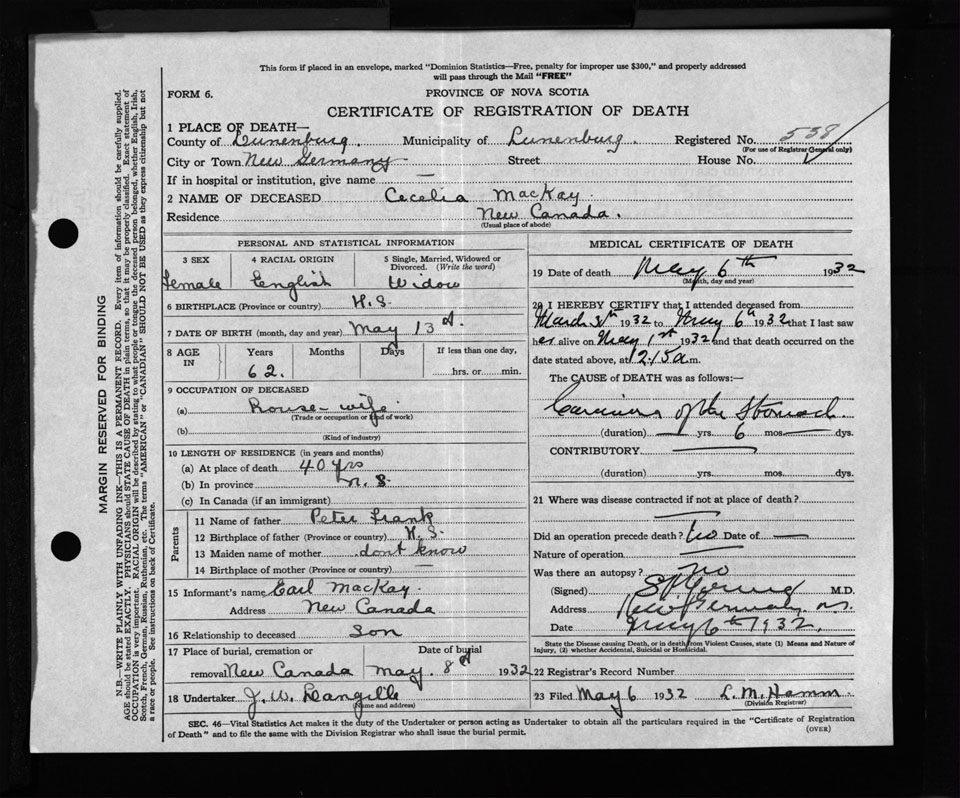 This form if placed in an envelope, marked "Dominion Statistics—Free, penalty for improper use $300," and properly addressed
will pass through the Mail "FREE"
FORM 6.
PROVINCE OF NOVA SCOTIA
CERTIFICATE OF REGISTRATION OF DEATH
1 PLACE OF DEATH—
County of Lunenburg Municipality of Lunenburg Registered No. 558
(For use of Registrar General only)
City or Town New Germany Street House No.
If in hospital or institution, give name —
2 NAME OF DECEASED Cecelia MacKay
Residence New Canada.
(Usual place of abode)
PERSONAL AND STATISTICAL INFORMATION
3 SEX 4 RACIAL ORIGIN 5 Single, Married, Widowed or Divorced. (Write the word)
Female English Widow
6 BIRTHPLACE (Province or country) N.S.
7 DATE OF BIRTH (month, day and year) May 13
8 AGE IN Years Months Days If less than one day,
62. hrs. or min.
9 OCCUPATION OF DECEASED
(a) House-wife
(Trade or occupation or kind of work)
(b)
(Kind of industry)
10 LENGTH OF RESIDENCE (in years and months)
(a) At place of death 40 yrs
(b) In province N.S.
(c) In Canada (if an immigrant)
Parents
11 Name of father Peter Frank
12 Birthplace of father (Province or country) N.S.
13 Maiden name of mother dont know
14 Birthplace of mother (Province or country) —
15 Informant's name Earl MacKay.
Address New Canada
16 Relationship to deceased Son
17 Place of burial, cremation or Date of burial
removal New Canada May. 8 1932
18 Undertaker J. W.
(Name and address)
MEDICAL CERTIFICATE OF DEATH
19 Date of death May 6th 1932
(Month, day and year)
20 I HEREBY CERTIFY that I attended deceased from
March 1932 to May 6th 1932 that I last saw
her alive on May 1st 1932 and that death occurred on the
date stated above, at 12.15 a.m.
The CAUSE of DEATH was as follows:—
Carcinoma of the Stomach.
(duration) — yrs. 6 mos. — dys.
CONTRIBUTORY —
(duration) yrs. mos. dys.
21 Where was disease contracted if not at place of death?
—
Did an operation precede death? No Date of —
Nature of operation —
Was there an autopsy? No
(Signed) Young M.D.
Address New Germany N.S.
Date May 6th 1932.
State the Disease causing Death, or in death from Violent Causes, state (1) Means and Nature of
Injury, (2) whether Accidental, Suicidal or Homicidal.
22 Registrar's Record Number
23 Filed May 6 1932 L. M. Hamm
(Division Registrar)
SEC. 46—Vital Statistics Act makes it the duty of the Undertaker or person acting as Undertaker to obtain all the particulars required in the "Certificate of Registration
of Death" and to file the same with the Division Registrar who shall issue the burial permit. (OVER)
MARGIN RESERVED FOR BINDING
N.B.—WRITE PLAINLY WITH UNFADING INK—THIS IS A PERMANENT RECORD. Every item of information should be carefully supplied.
AGE should be stated EXACTLY. PHYSICIANS should STATE CAUSE OF DEATH in plain terms, so that it may be properly classified. Exact statement of
OCCUPATION is very important. RACIAL ORIGIN will be described by stating to what people or tongue the deceased person belonged, whether English, Irish,
Scotch, French, German, Russian, Ruthenian, etc. The terms "AMERICAN" or "CANADIAN" SHOULD NOT BE USED as they express citizenship but not
a race or people. See instructions on back of Certificate.